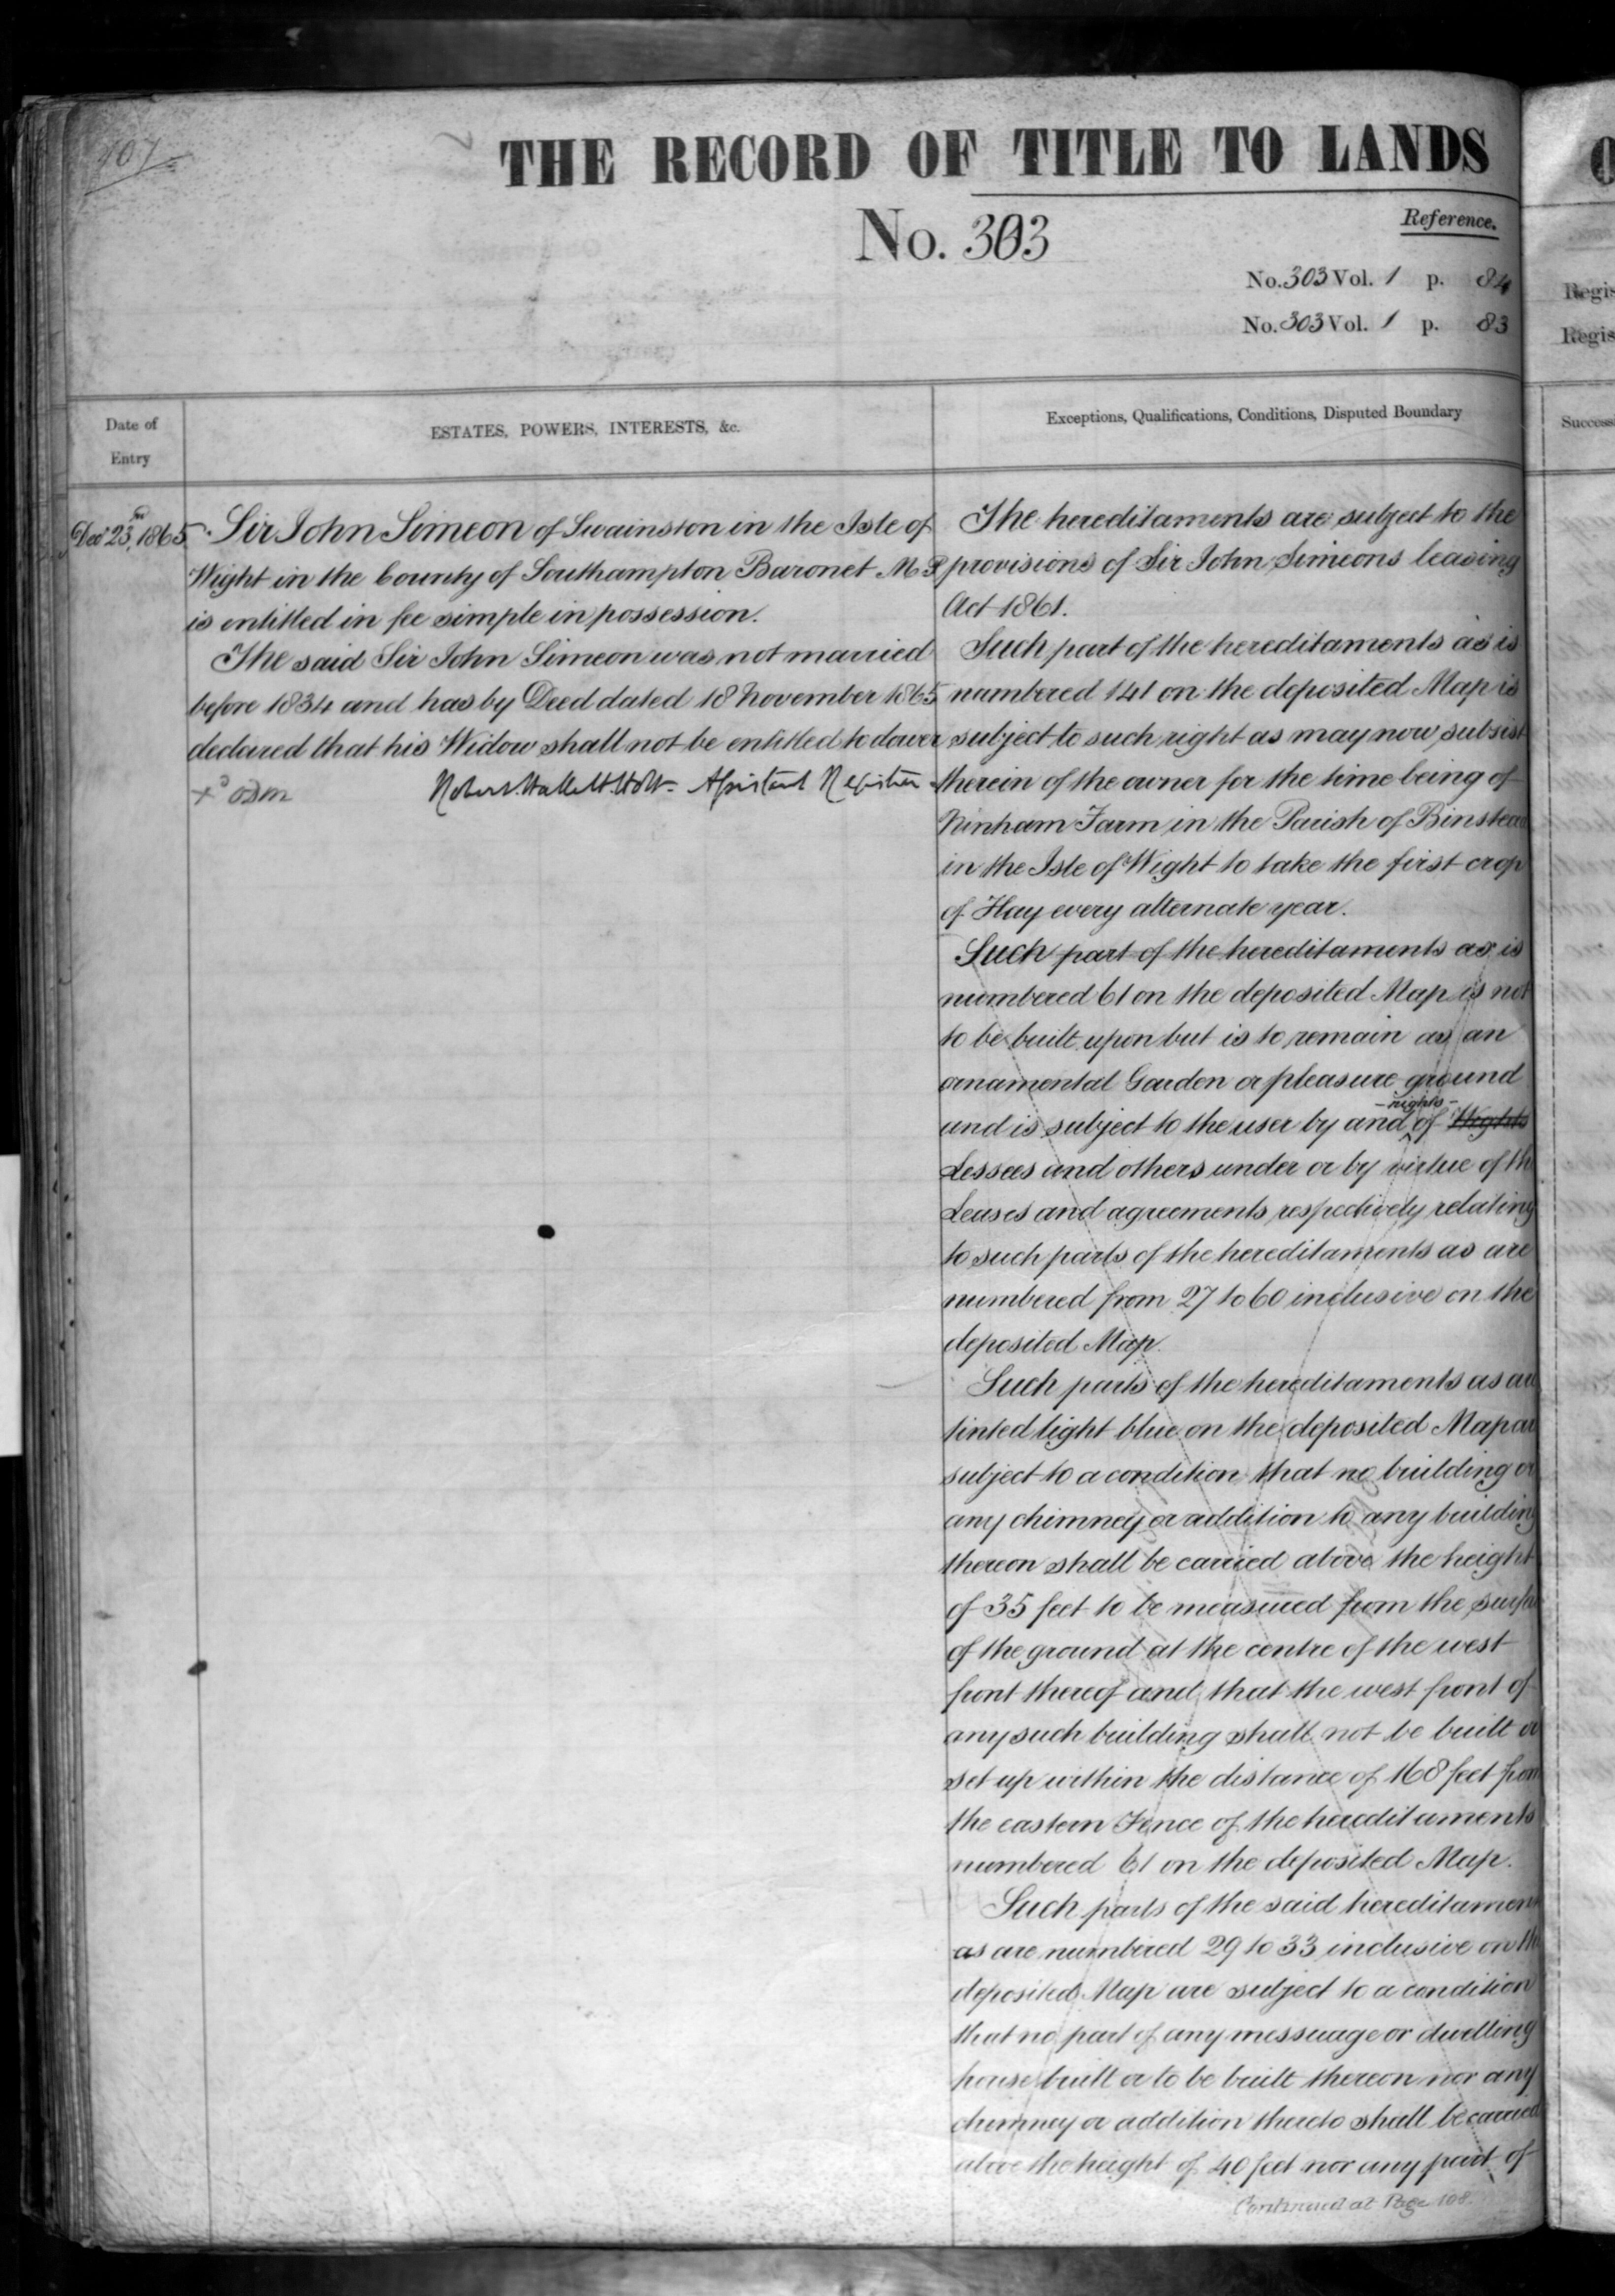 107
THE RECORD OF TITLE TO LANDS
No. 303
Reference.
No. 303 Vol. 1 p. 84
No. 303 Vol. 1 p. 83
Regis
Regis
Date of
Entry
ESTATES, POWERS, INTERESTS, &c.
Exceptions, Qualifications, Conditions, Disputed Boundary
Success
Decr 23rd, 1865
Sir John Simeon of Swainston in the Isle of
Wight in the County of Southampton Baronet M P
is entitled in fee simple in possession.
The said Sir John Simeon was not married
before 1834 and has by Deed dated 18 November 1865
declared that his Widow shall not be entitled to dower
Robert Hallett Holt - Assistant Registrar
The hereditaments are subject to the
provisions of Sir John Simeons leasing
Act 1861.
Such part of the hereditaments as is
numbered 141 on the deposited Map is
subject to such right as may now subsist
therein of the owner for the time being of
Ninham Farm in the Parish of Binstead
in the Isle of Wight to take the first crop
of Hay every alternate year.
Such part of the hereditaments as is
numbered 61 on the deposited Map is not
to be built upon but is to remain as an
ornamental Garden or pleasure ground
and is subject to the user by and rights of
Lessees and others under or by virtue of th
Leases and agreements respectively relating
to such parts of the hereditaments as are
numbered from 27 to 60 inclusive on the
deposited Map.
Such parts of the hereditaments as ar
tinted light blue on the deposited Map ar
subject to a condition that no building or
any chimney or addition to any building
thereon shall be carried above the height
of 35 feet to be measured from the surfa
of the ground at the centre of the west
front thereof and that the west front of
any such building shall not be built or
set up within the distance of 168 feet from
the eastern Fence of the hereditaments
numbered 61 on the deposited Map.
Such parts of the said hereditament
as are numbered 29 to 33 inclusive on th
deposited Map are subject to a condition
that no part of any messuage or dwelling
house built or to be built thereon nor any
chimney or addition thereto shall be carried
above the height of 40 feet nor any part of
Continued at Page 108.